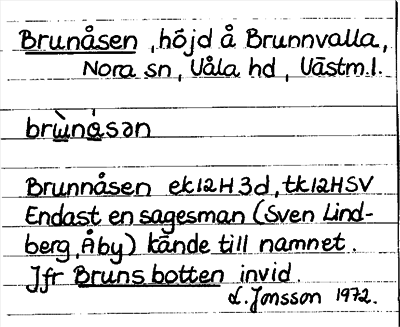 Brunåsen, höjd å Brunnvalla,
Nora sn, Våla hd, Västm.l.
brɯ̀nɑ́sən
Brunnåsen ek12H3d, tk12HSV
Endast en sagesman (Sven Lind-
berg, Åby) kände till namnet.
Jfr Brunsbotten invid.
L. Jonsson 1972.